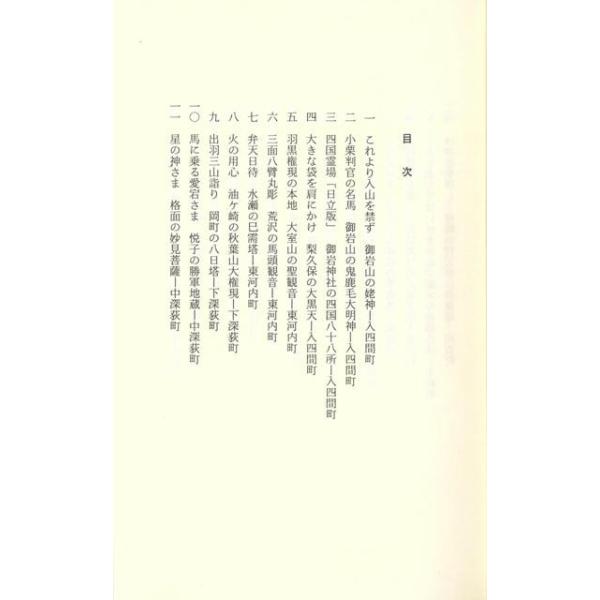 目次
一 これより入山を禁ず 御岩山の姥神ー入四間町
二 小栗判官の名馬 御岩山の鬼鹿毛大明神ー入四間町
三 四国霊場「日立版」 御岩神社の四国八十八所ー入四間町
四 大きな袋を肩にかけ 梨久保の大黒天ー入四間町
五 羽黒権現の本地 大室山の聖観音ー東河内町
六 三面八臂丸彫 荒沢の馬頭観音ー東河内町
七 弁天日待 水瀬の巳需塔ー東河内町
八 火の用心 油ケ崎の秋葉山大権現ー下深荻町
九 出羽三山詣り 岡町の八日塔ー下深荻町
一〇 馬に乗る愛宕さま 悦子の勝軍地蔵ー中深荻町
一一 星の神さま 格面の妙見菩薩ー中深荻町